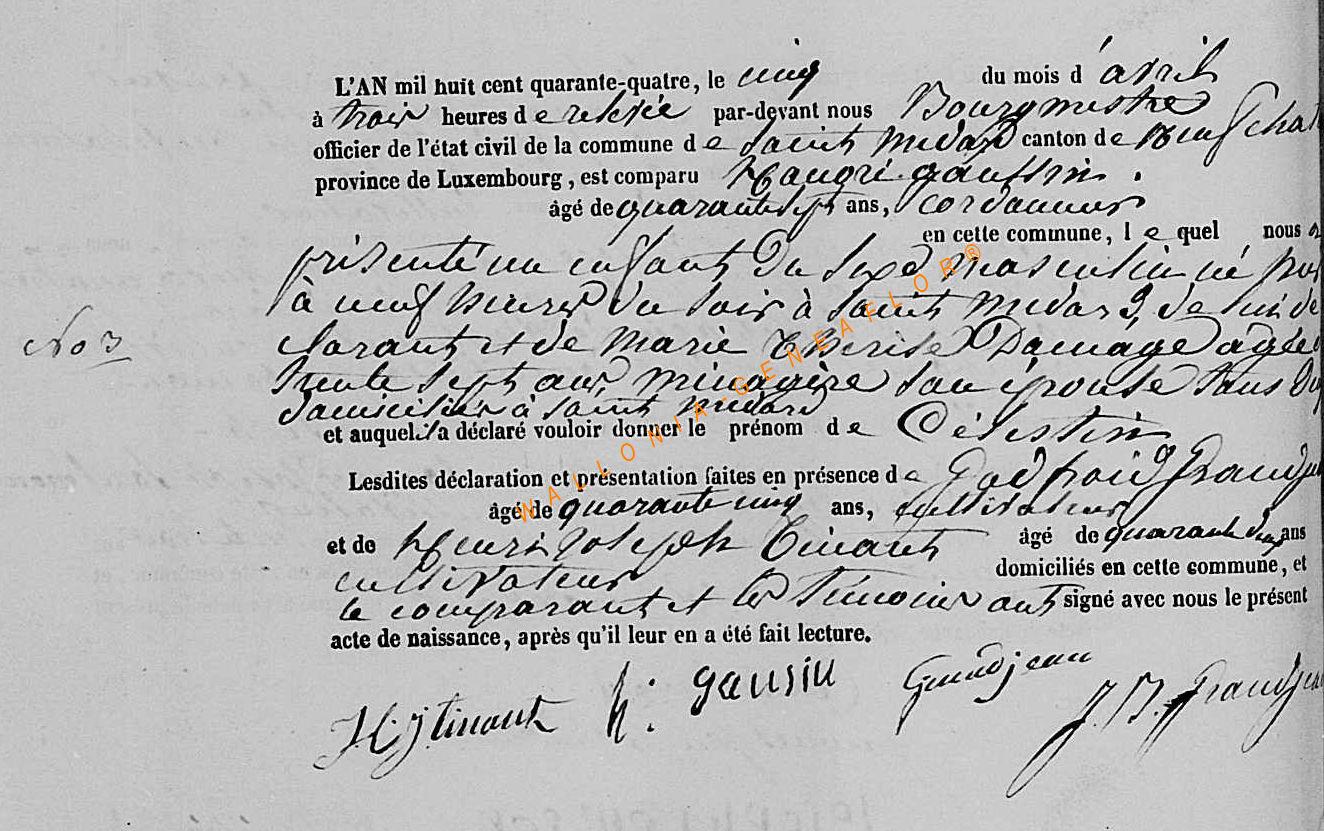 L'AN mil huit cent quarante-quatre, le cinq du mois d'avril
à trois heures de relevée par-devant nous Bourgmestre
officier de l'état civil de la commune de Saint Médard canton de Neufchat
province de Luxembourg, est comparu gaussin.
âgé de quarante sept ans, Cordonnier
en cette commune, lequel nous a
présenté un enfant du sexe masculin né
à neuf heures du soir à Saint Médard, de lui dé
clarant et de Marie Thérèse Damage agée
trente sept ans ménagère son épouse tous
domiciliés à Saint Médard
No 3
et auquel il a déclaré vouloir donner le prénom de Célestin
Lesdites déclaration et présentation faites en présence de Godfroid Grandje
âgé de quarante cinq ans, cultivateur
et de Henri Joseph Tinant âgé de quarante cinq ans
cultivateur domiciliés en cette commune, et
le comparant et les témoins ont signé avec nous le présent
acte de naissance, après qu'il leur en a été fait lecture.
H. J Tinant h. gausin Grandjean J. B. Grandjea
WALLONIA-GENEAFLOR®